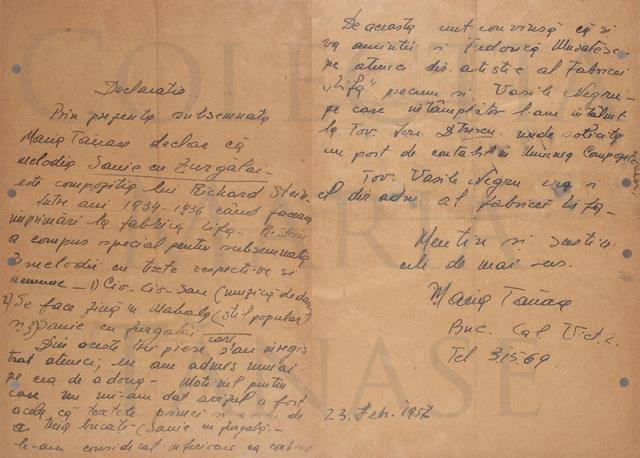 Declaratie
Prin prezenta subsemnata
Maria Tănase declar că
melodia Sanie cu Zurgălăi –
este compoziția lui Richard Stein.
Între ani 1934-1936 când făceam
imprimări la fabrica Lifa – R. Stein
a compus special pentru subsemnata
3 melodii cu texte respective și
anume – 1) Cio-Cio-San (muzică de dans)
2) Se face ziuă în Mahala (stil popular)
și 3) Sanie cu zurgălăi
Din aceste trei piese, s'au înregis
trat atunci, eu am admis numai
pe cea de a doua – Motivul pentru
care nu mi-am dat avizul a fost
acela că textele primei și de
a treia bucate (Sanie cu zurgălăi –
le-am considerat inferioare ca
De aceasta sunt convinsă că și
va aminti și Tudorică
pe atunci dir. artistic al Fabricei
"Lifa" precum și Vasile Negru –
pe care întâmplător l-am întâlnit
la Tov. Ion unde solicita
un post de contabil în Uniunea Compozitorilor
Tov. Vasile Negru era și
el dir adm al fabricei Lifa –
Mentin si sustin
cele de mai sus.
Maria Tănase
Buc. Cal. Vict.
Tel 3.15.69.
23. Feb. 1957
COLECȚIA
MARIA
TĂNASE